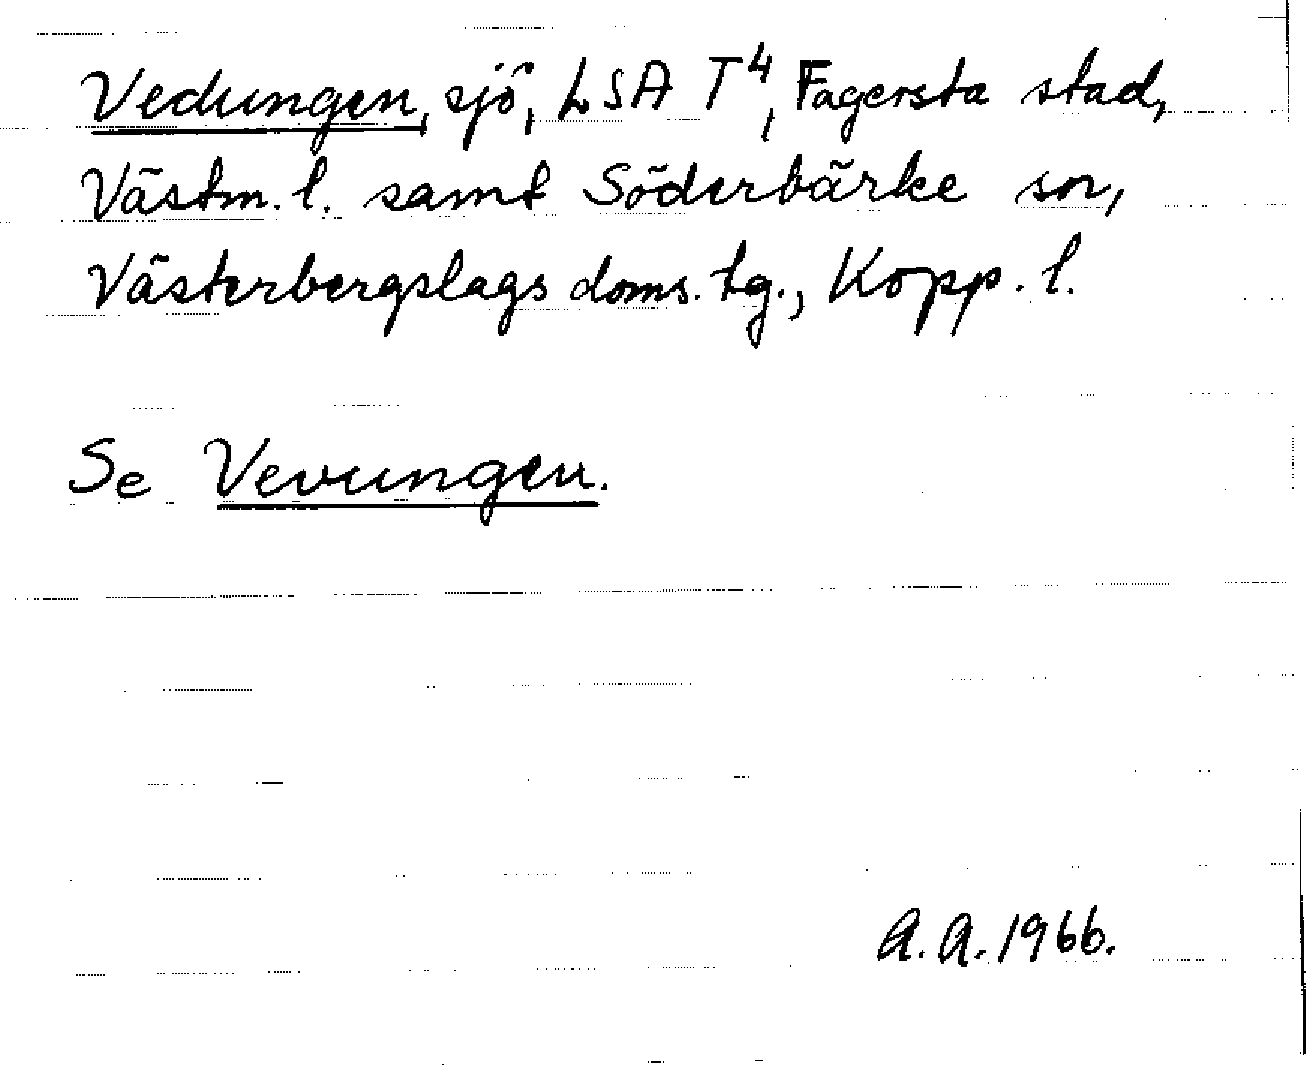 Vedungen, sjö, LSA T4, Fagersta stad,
Västm. l. samt Söderbärke sn,
Västerbergslags doms. tg., Kopp. l.
Se Vevungen.
A.A. 1966.